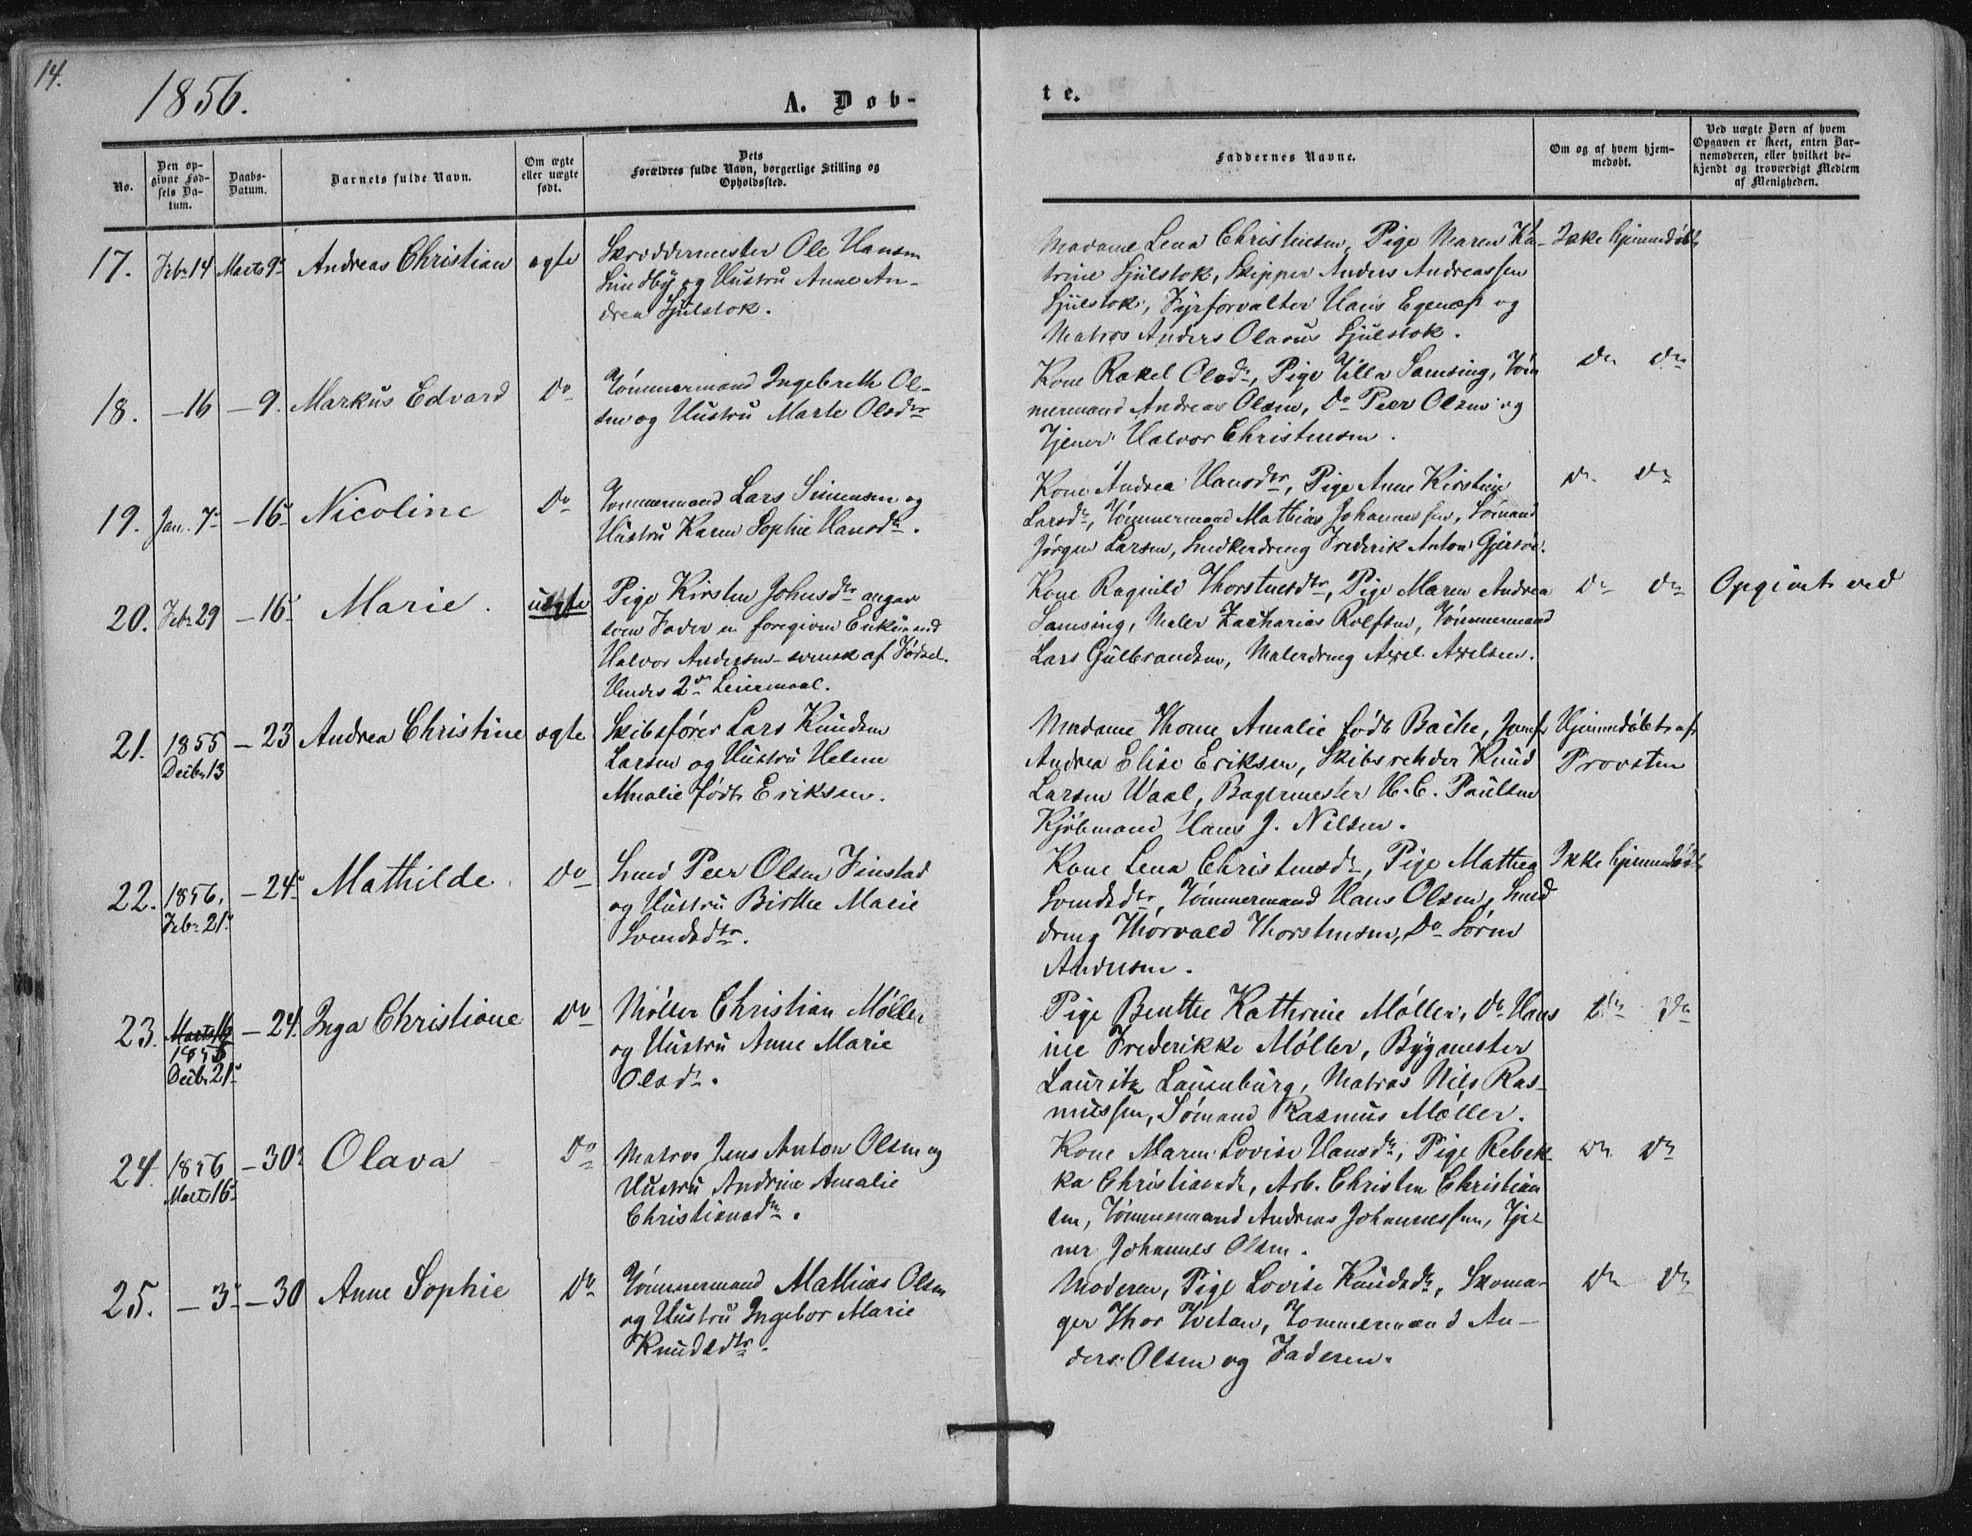 14.
1856.
A. Døb-
te.
No.
Den op-
givne Fød-
sels Da-
tum.
Daabs-
Datum.
Barnets fulde Navn.
Om ægte
eller uægte
født.
Dets
Forældres fulde Navn, borgerlige Stilling og
Opholdssted.
Faddernes Navne.
Om og af hvem hjem-
medøbt.
Ved uægte Børn af hvem
Opgaven er skeet, enten Bar-
nemoderen, eller hvilket be-
kjendt og troværdigt Medlem
af Menigheden.
17. Febr 14 Marts 9 Andreas Christian ægte
Skræddermester Ole Hansen
Lindby og Hustru Anne An-
drea Hjulstok.
Madame Lena Christensen, Pige Maren Ka-
trine Hjulstok, Skipper Anders Andreassen
Hjulstok, Fyrforvalter Hans Egenæs og
Matros Anders Olavus Hjulstok.
Ikke hjemmedøbt
18. -16 -9. Markus Edvard Do
Tømmermand Ingebreth Ol-
sen og Hustru Marte Olsdtr
Kone Rakel Olsdr, Pige Ulla Samsing, Tøm
mermand Andreas Olsen, Do Peer Olsen og
Tjener Halvor Christensen.
Do Do
19. Jan. 7 -16 Nicoline Do
Tømmermand Lars Simensen og
Hustru Karen Sophie Hansdr.
Kone Andrea Hansdtr, Pige Anne Kirstine
Larsdr, Tømmermand Mathias Johannessen, Sømand
Jørgen Larsen, Snedkerdreng Frederik Anton Gjersøe.
Do Do
20. Febr 29 -16 Marie. uægte
Pige Kirsten Johnsdr angav
som Fader en foregiven Enkemand
Halvor Andersen - svensk af Fødsel.
Hendes 2det Leiermaal.
Kone Ragnild Thorstensdtr, Pige Maren Andrea
Samsing, Maler Zacharias Rolfsen, Tømmermand
Lars Gulbrandsen, Malerdreng Axel Axelsen.
Do Do
Opgivet ved
21. 1855
Decbr 13
-23 Andrea Christine ægte
Skibsfører Lars Knudsen
Larsen og Hustru Helene
Amalie født Eriksen.
Madame Thone Amalie født Bache, Jomfr
Andrea Elise Eriksen, Skibsrehder Knud
Larsen Waal, Bagermester H. C. Paulsen
Kjøbmand Hans J. Nilsen.
Hjemmedøbt af
Provsten
22. 1856,
Febr 21
-24 Mathilde. Do
Smed Peer Olsen Finstad
og Hustru Birthe Marie
Svendsdtr.
Kone Lena Christensdr, Pige Mathea
Svendsdtr, Tømmermand Hans Olsen, Smed
dreng Thorvald Thorstensen, Do Søren
Andersen.
Ikke hjemmedøbt
23. Marts 16
1855
Decbr 21
-24. Inga Christiane Do
Møller Christian Møller
og Hustru Anne Marie
Olsdr.
Pige Benthe Kathrine Møller, Do Hans
ine Frederikke Møller, Bygmester
Lauritz Lauenburg, Matros Nils Ras-
mussen, Sømand Rasmus Møller.
Do Do
24. 1856
Marts 16
-30 Olava Do
Matros Jens Anton Olsen og
Hustru Andrine Amalie
Christiansdtr.
Kone Maren Lovise Hansdr, Pige Rebek-
ka Christiansdr, Arb. Christen Christian
sen, Tømmermand Andreas Johannessen, Tje-
ner Johannes Olsen.
Do Do
25. -3 -30 Anne Sophie Do
Tømmermand Mathias Olsen
og Hustru Ingebor Marie
Knudsdtr.
Moderen, Pige Lovise Knudsdr, Skoma-
ger Thor Tvetan, Tømmermand An-
ders Olsen og Faderen.
Do Do